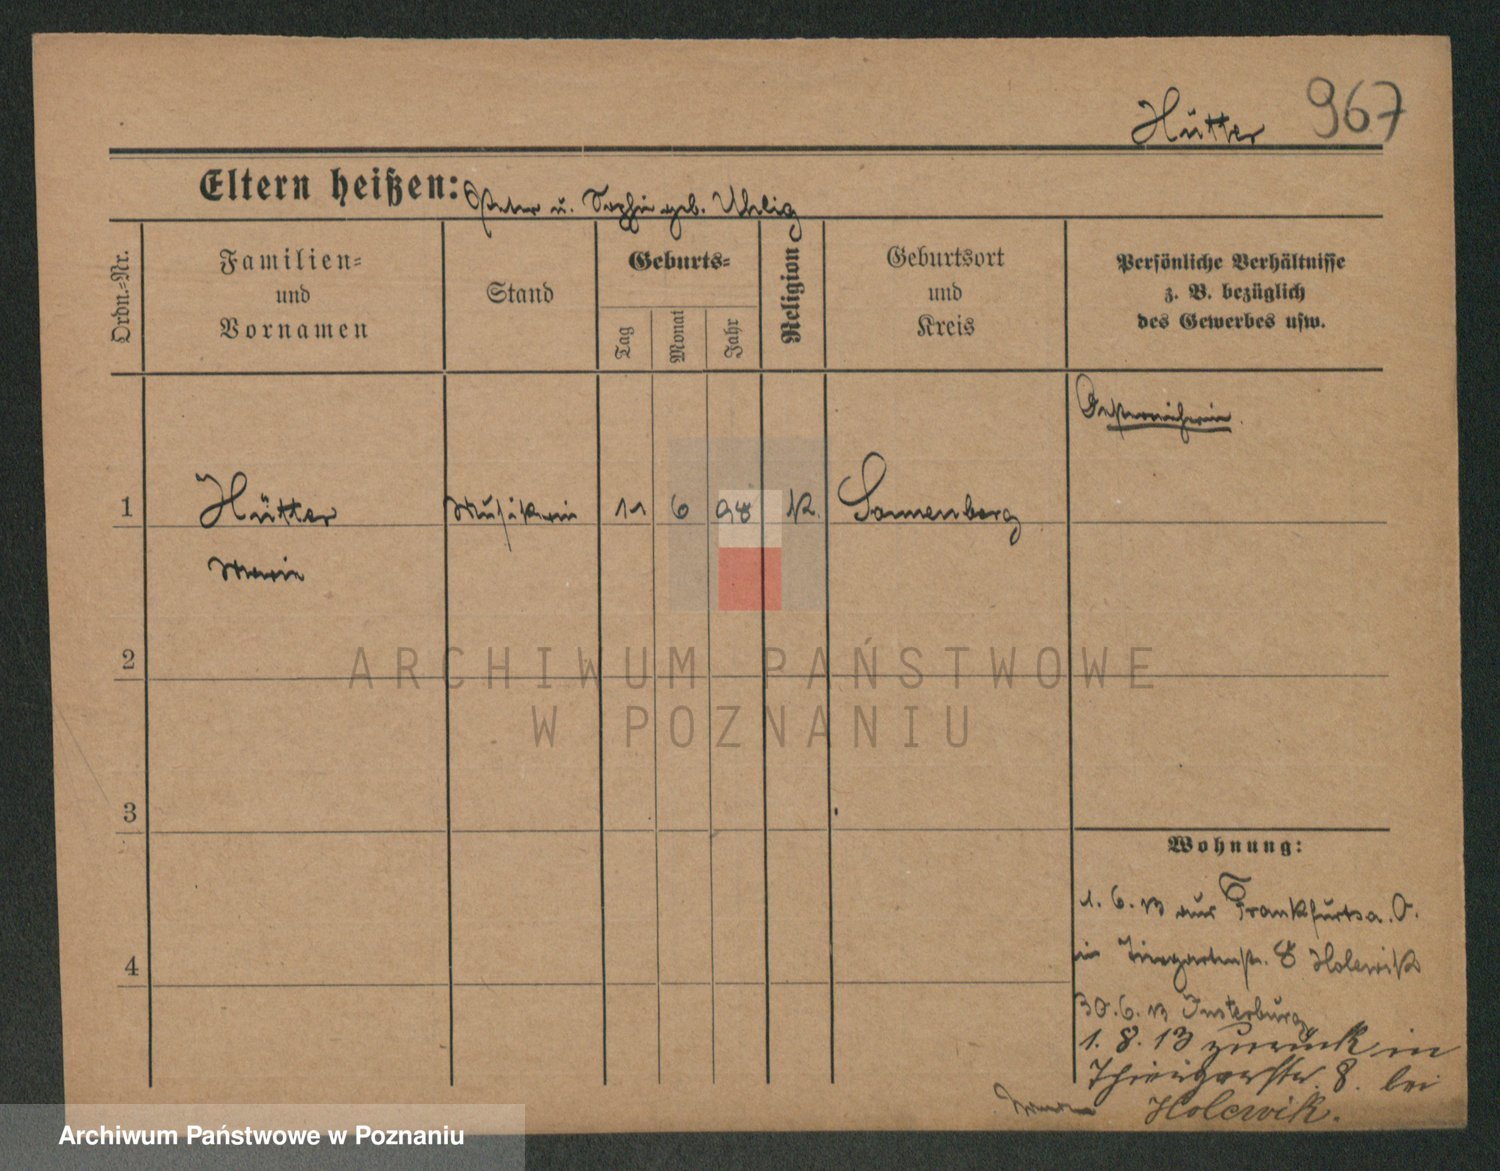 Hütter 967
Eltern heißen: Peter u. Sophie geb. Uhlig
Ordn.-Nr.
Familien-
und
Vornamen
Stand
Geburts-
Tag
Monat
Jahr
Religion
Geburtsort
und
Kreis
Persönliche Verhältnisse
z. B. bezüglich
des Gewerbes usw.
Oesterreicherin.
1 Hütter Musikerin 11 6 98 K. Sonnenberg
Marie
2
ARCHIWUM PAŃSTWOWE
W POZNANIU
3
Wohnung:
1. 6. 13 aus Frankfurt a. O.
in Tiergartenstr. 8 Holewik
4
30. 6. 13 Insterburg
1. 8. 13 zurück in
8. bei
Holewik.
Archiwum Państwowe w Poznaniu